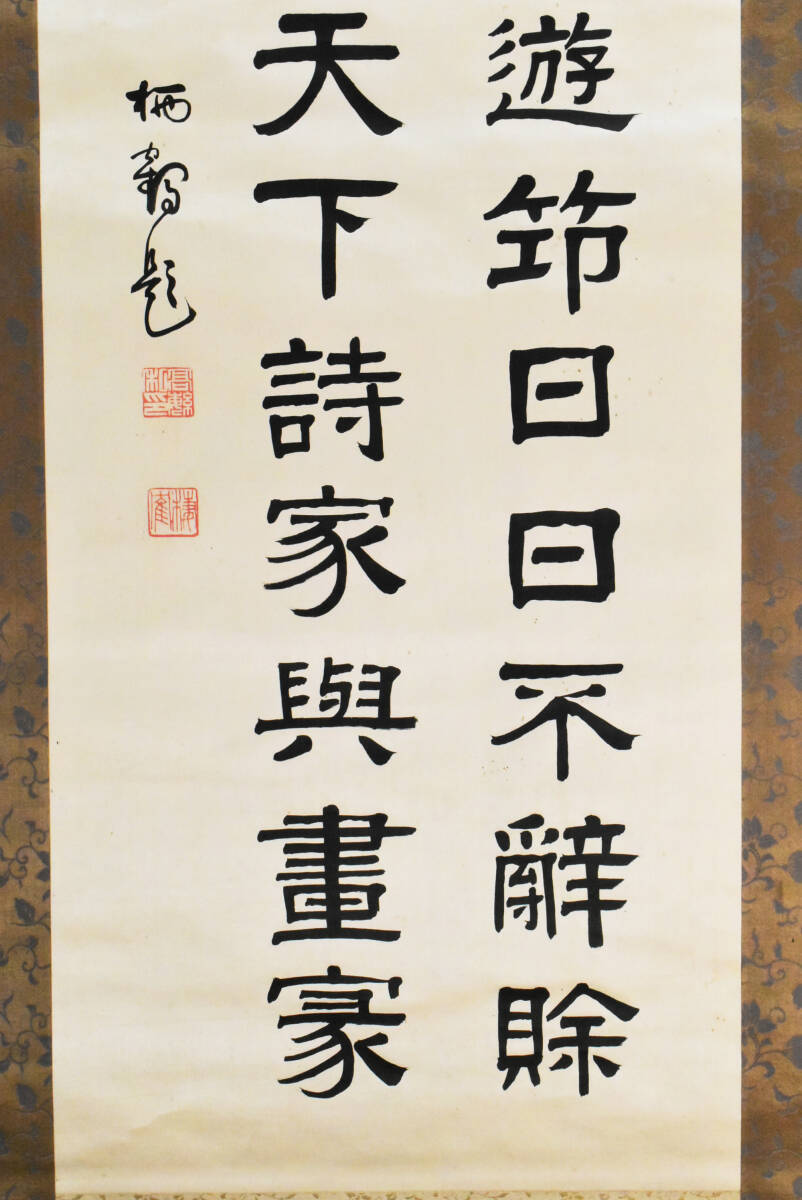 遊筇日日不辭賒
天下詩家與畫家
栖鶴題